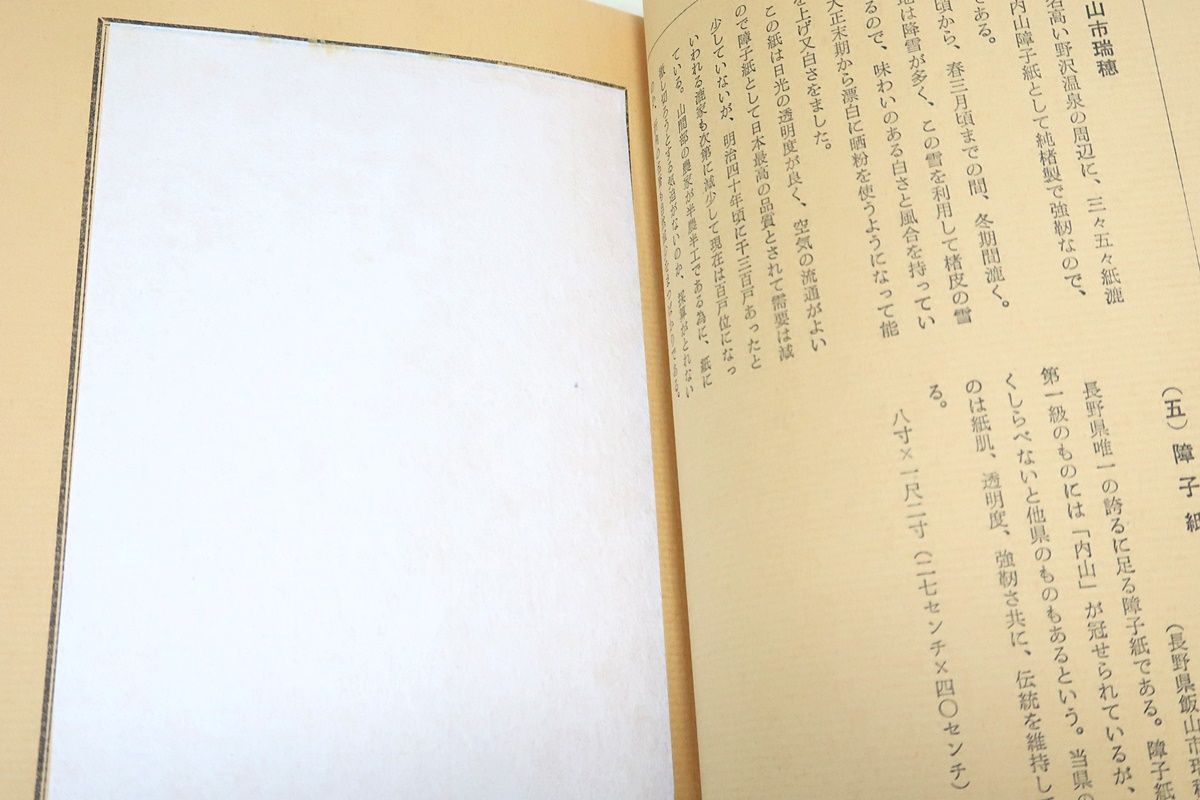 山市瑞穂
名高い野沢温泉の周辺に、三々五々紙漉
内山障子紙として純楮製で強靱なので、
である。
頃から、春三月頃までの間、冬期間漉く。
地は降雪が多く、この雪を利用して楮皮の雪
るので、味わいのある白さと風合を持ってい
大正末期から漂白に晒粉を使うようになって能
を上げ又白さをました。
この紙は日光の透明度が良く、空気の流通がよい
ので障子紙として日本最高の品質とされて需要は減
少していないが、明治四十年頃に千三百戸あったと
いわれる漉家も次第に減少して現在は百戸位になっ
ている。山間部の農家が半農半工である為に、紙に
徹し切ろうとする気迫がないのか、採算がとれない
(五)障子紙
(長野県飯山市瑞穂
長野県唯一の誇るに足る障子紙である。障子紙
第一級のものには「内山」が冠せられているが、
くしらべないと他県のものもあるという。当県の
のは紙肌、透明度、強靱さ共に、伝統を維持して
る。
八寸×一尺二寸(二七センチ×四〇センチ)